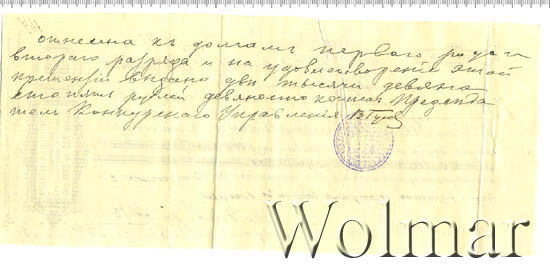 отнесена къ долгамъ перваго рода
втораго разряда и на удовлетворенiе этой
претензiи выдано двѣ тысячи девяно
сто пять рублей девяносто копѣекъ Предсѣда
тель Конкурснаго Управленiя
Wolmar